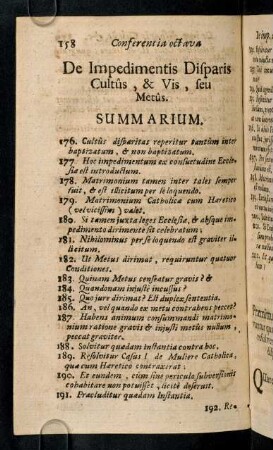 158 Conferentia octava
De Impedimentis Disparis
Cultûs, & Vis, seu
Metûs.
SUMMARIUM.
176. Cultûs disparitas reperitur tantùm inter
baptizatum, & non baptizatum.
177. Hoc impedimentum ex consuetudine Eccle-
sia est introductum.
178. Matrimonium tamen inter tales semper
fuit, & est illicitum per se loquendo.
179. Matrimonium Catholica cum Haretico
(vel vicissim) valet.
180. Si tamen juxta leges Ecclesia, & absque im-
pedimento dirimente sit celebratum;
181. Nihilominus per se loquendo est graviter il-
licitum.
182. Ut Metus dirimat, requiruntur quatuor
Conditiones.
183. Quinam Metus censeatur gravis? &
184. Quandonam injustè incussus?
185. Quo jure dirimat? Est duplex sententia.
186. An, vel quando ex metu contrahens peccet?
187. Habens animum consummandi matrimo-
nium ratione gravis & injusti metûs nullum,
peccat graviter.
188. Solvitur quadam instantia contra hoc.
189. Resolvitur Casus I. de Muliere Catholica,
qua cum Haretico contraxerat;
190. Et eundem, cùm sine periculo subversionis
cohabitare non potuisset, licitè deseruit.
191. Pracluditur quadam Instantia.
192. Re-